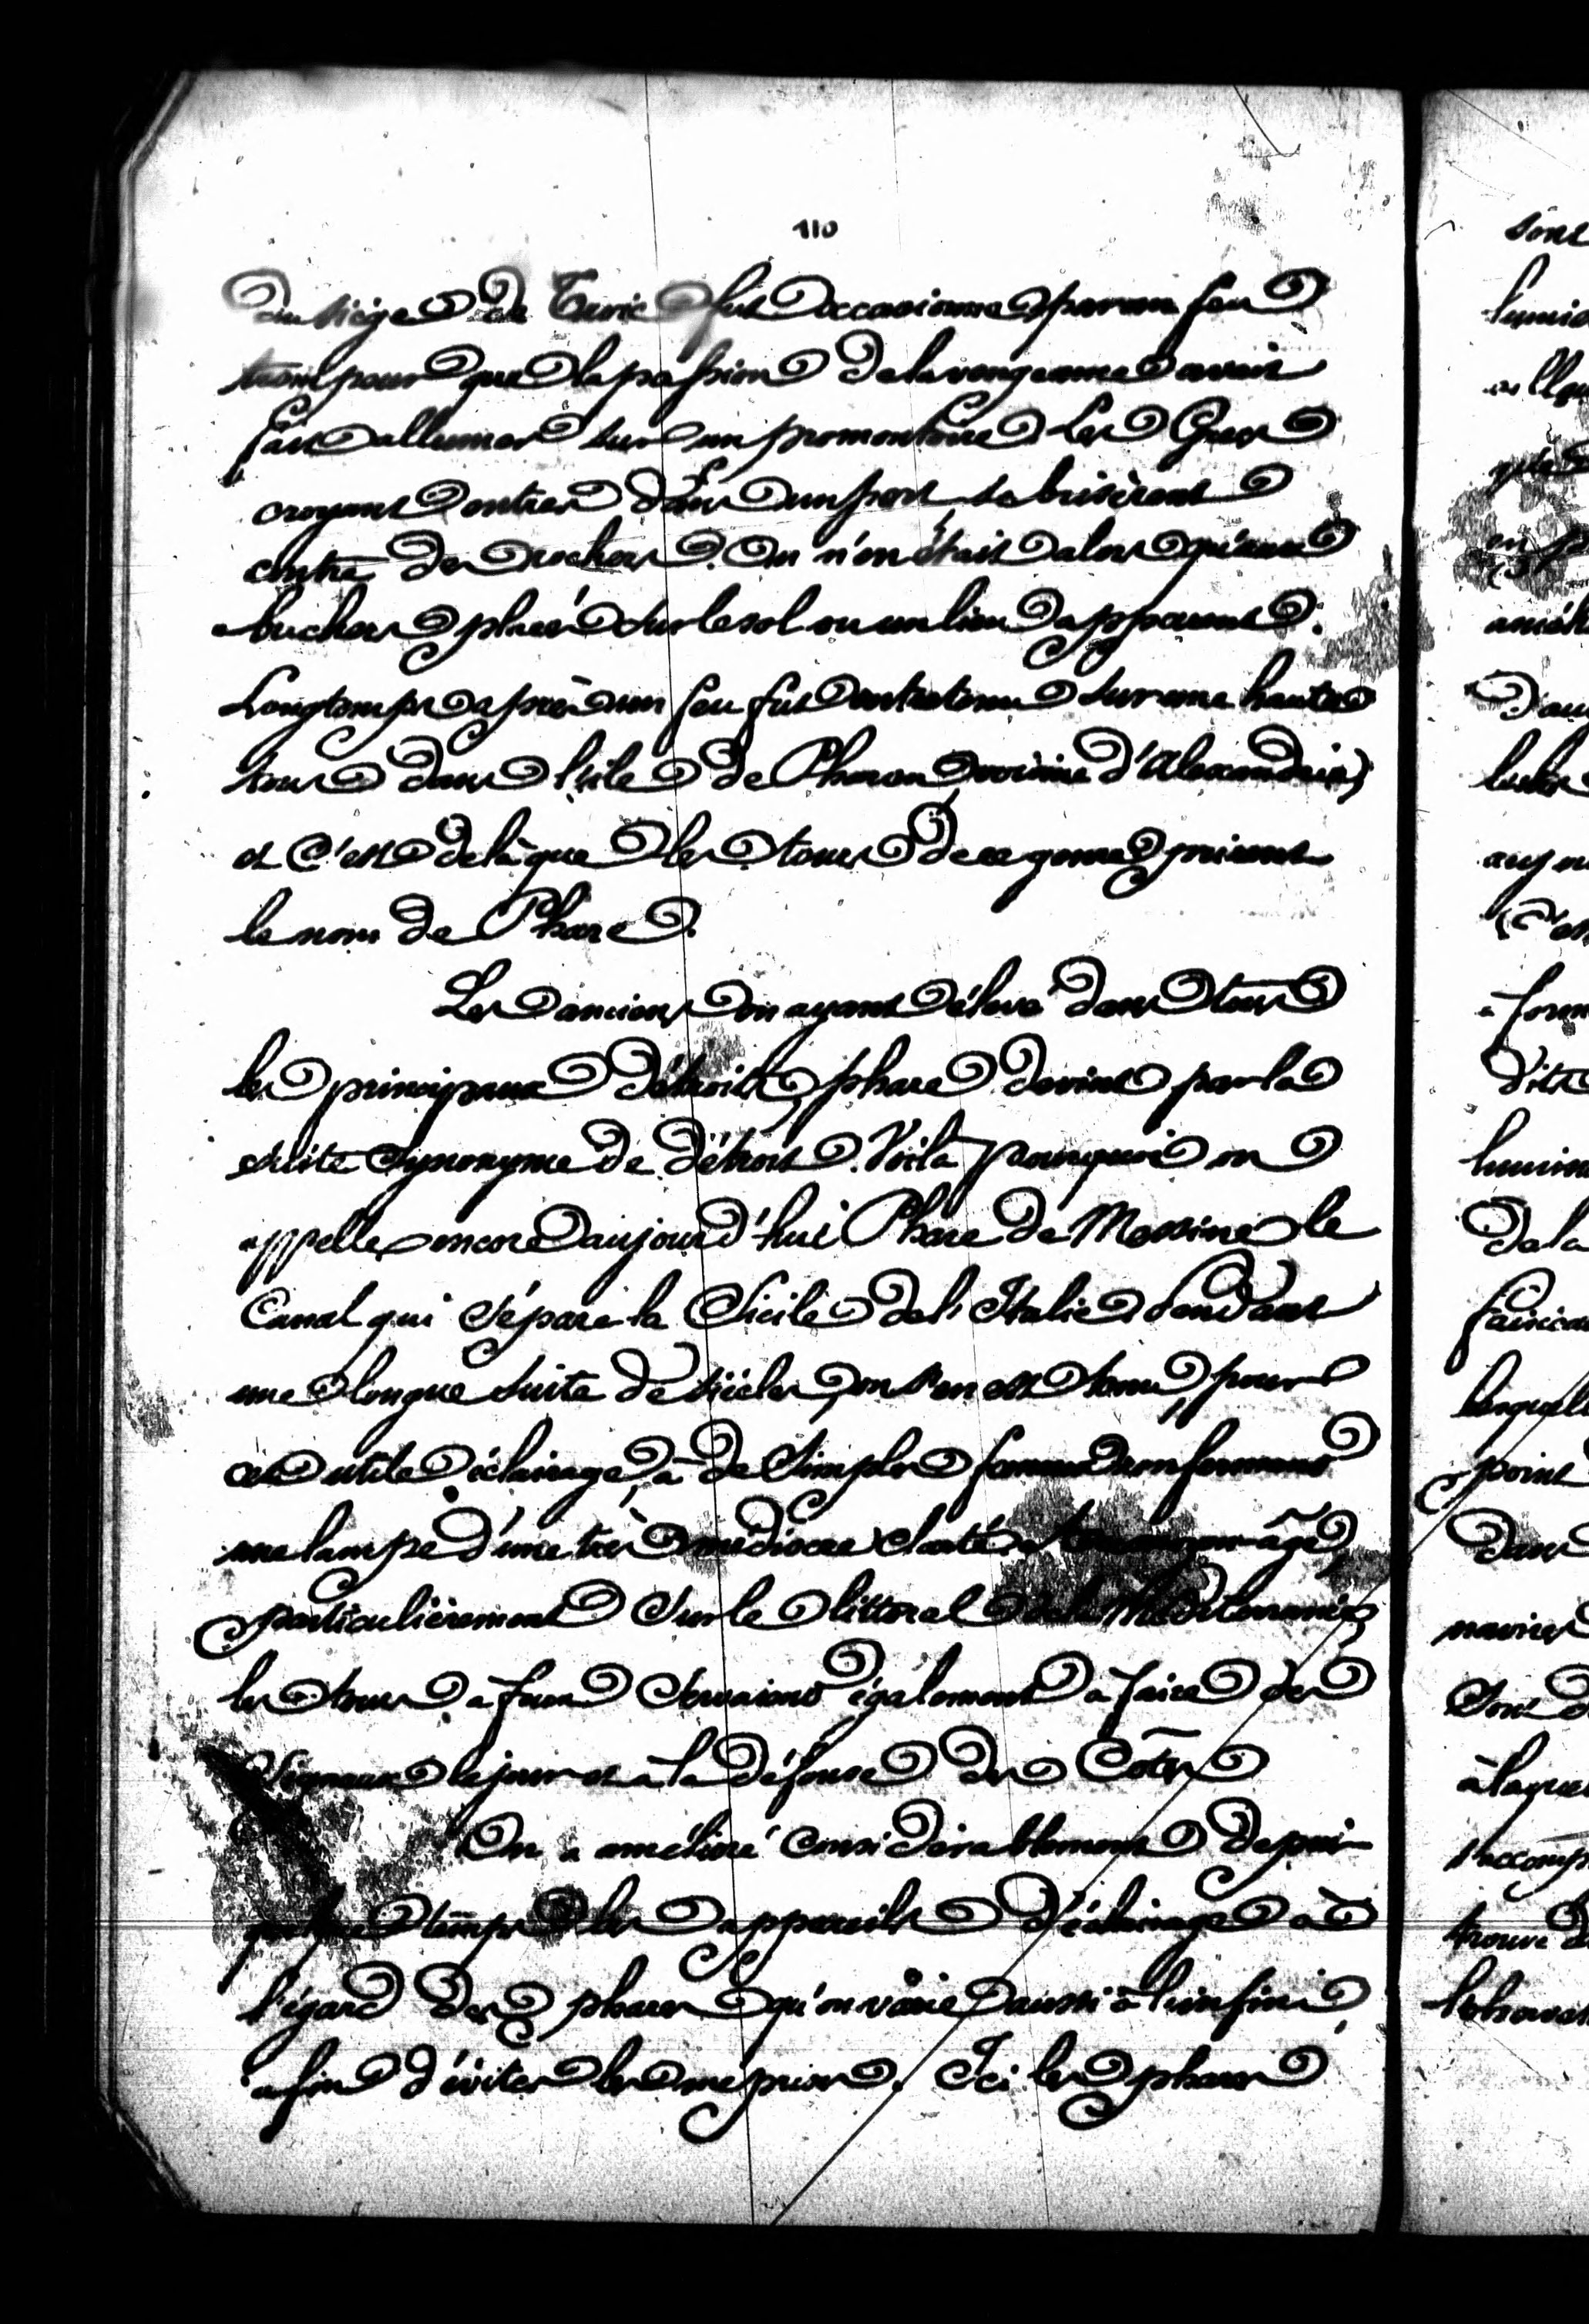 110
du siège de Troie fut occasionné par un feu
trompeur que la passion de la vengeance avait
fait allumer sur un promontoire. Les Grecs
croyant entrer dans un port se brisèrent
contre des rochers. On n'en était alors qu'aux
buchers placés sur le sol ou un lieu apparent.
Longtemps après un feu fut entretenu sur une haute
tour dans l'île de Pharos voisine d'Alexandrie,
et c'est de là que les tours de ce genre prirent
le nom de Phare.
Les anciens en ayant élevé dans tous
les principaux détroits, phare devint par la
suite synonyme de détroit. Voilà pourquoi on
appelle encore aujourd'hui Phare de Messine le
Canal qui sépare la Sicile de l'Italie. Pendant
une longue suite de siècles, on s'en est tenu, pour
cet utile éclairage, à de simples
une lampe d'une très médiocre clarté. âge,
particulièrement sur le littoral de la Méditerranée,
les tours à feux servaient également à faire des
signaux le jour et à la défense des Côtes
On a amélioré considérablement depuis
quelque temps les appareils d'éclairage à
l'égard des phares qu'on varie aussi à l'infini,
afin d'éviter les méprises. Ici les phares